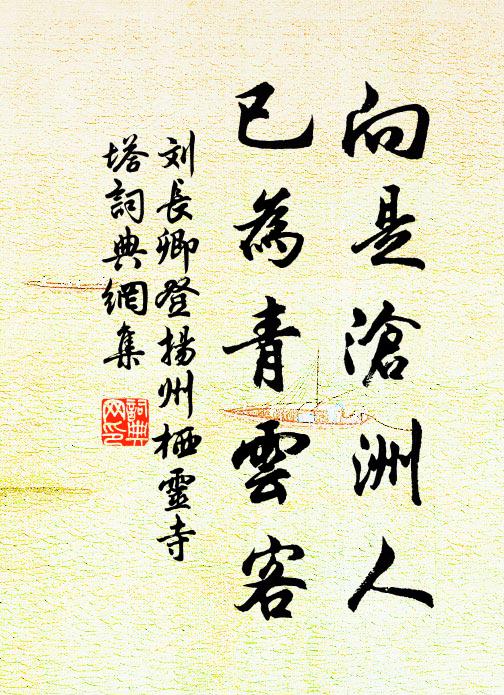 向是滄洲人
已為青雲客
刘長卿登揚州栖靈寺
塔詞典網集
詞典
网印